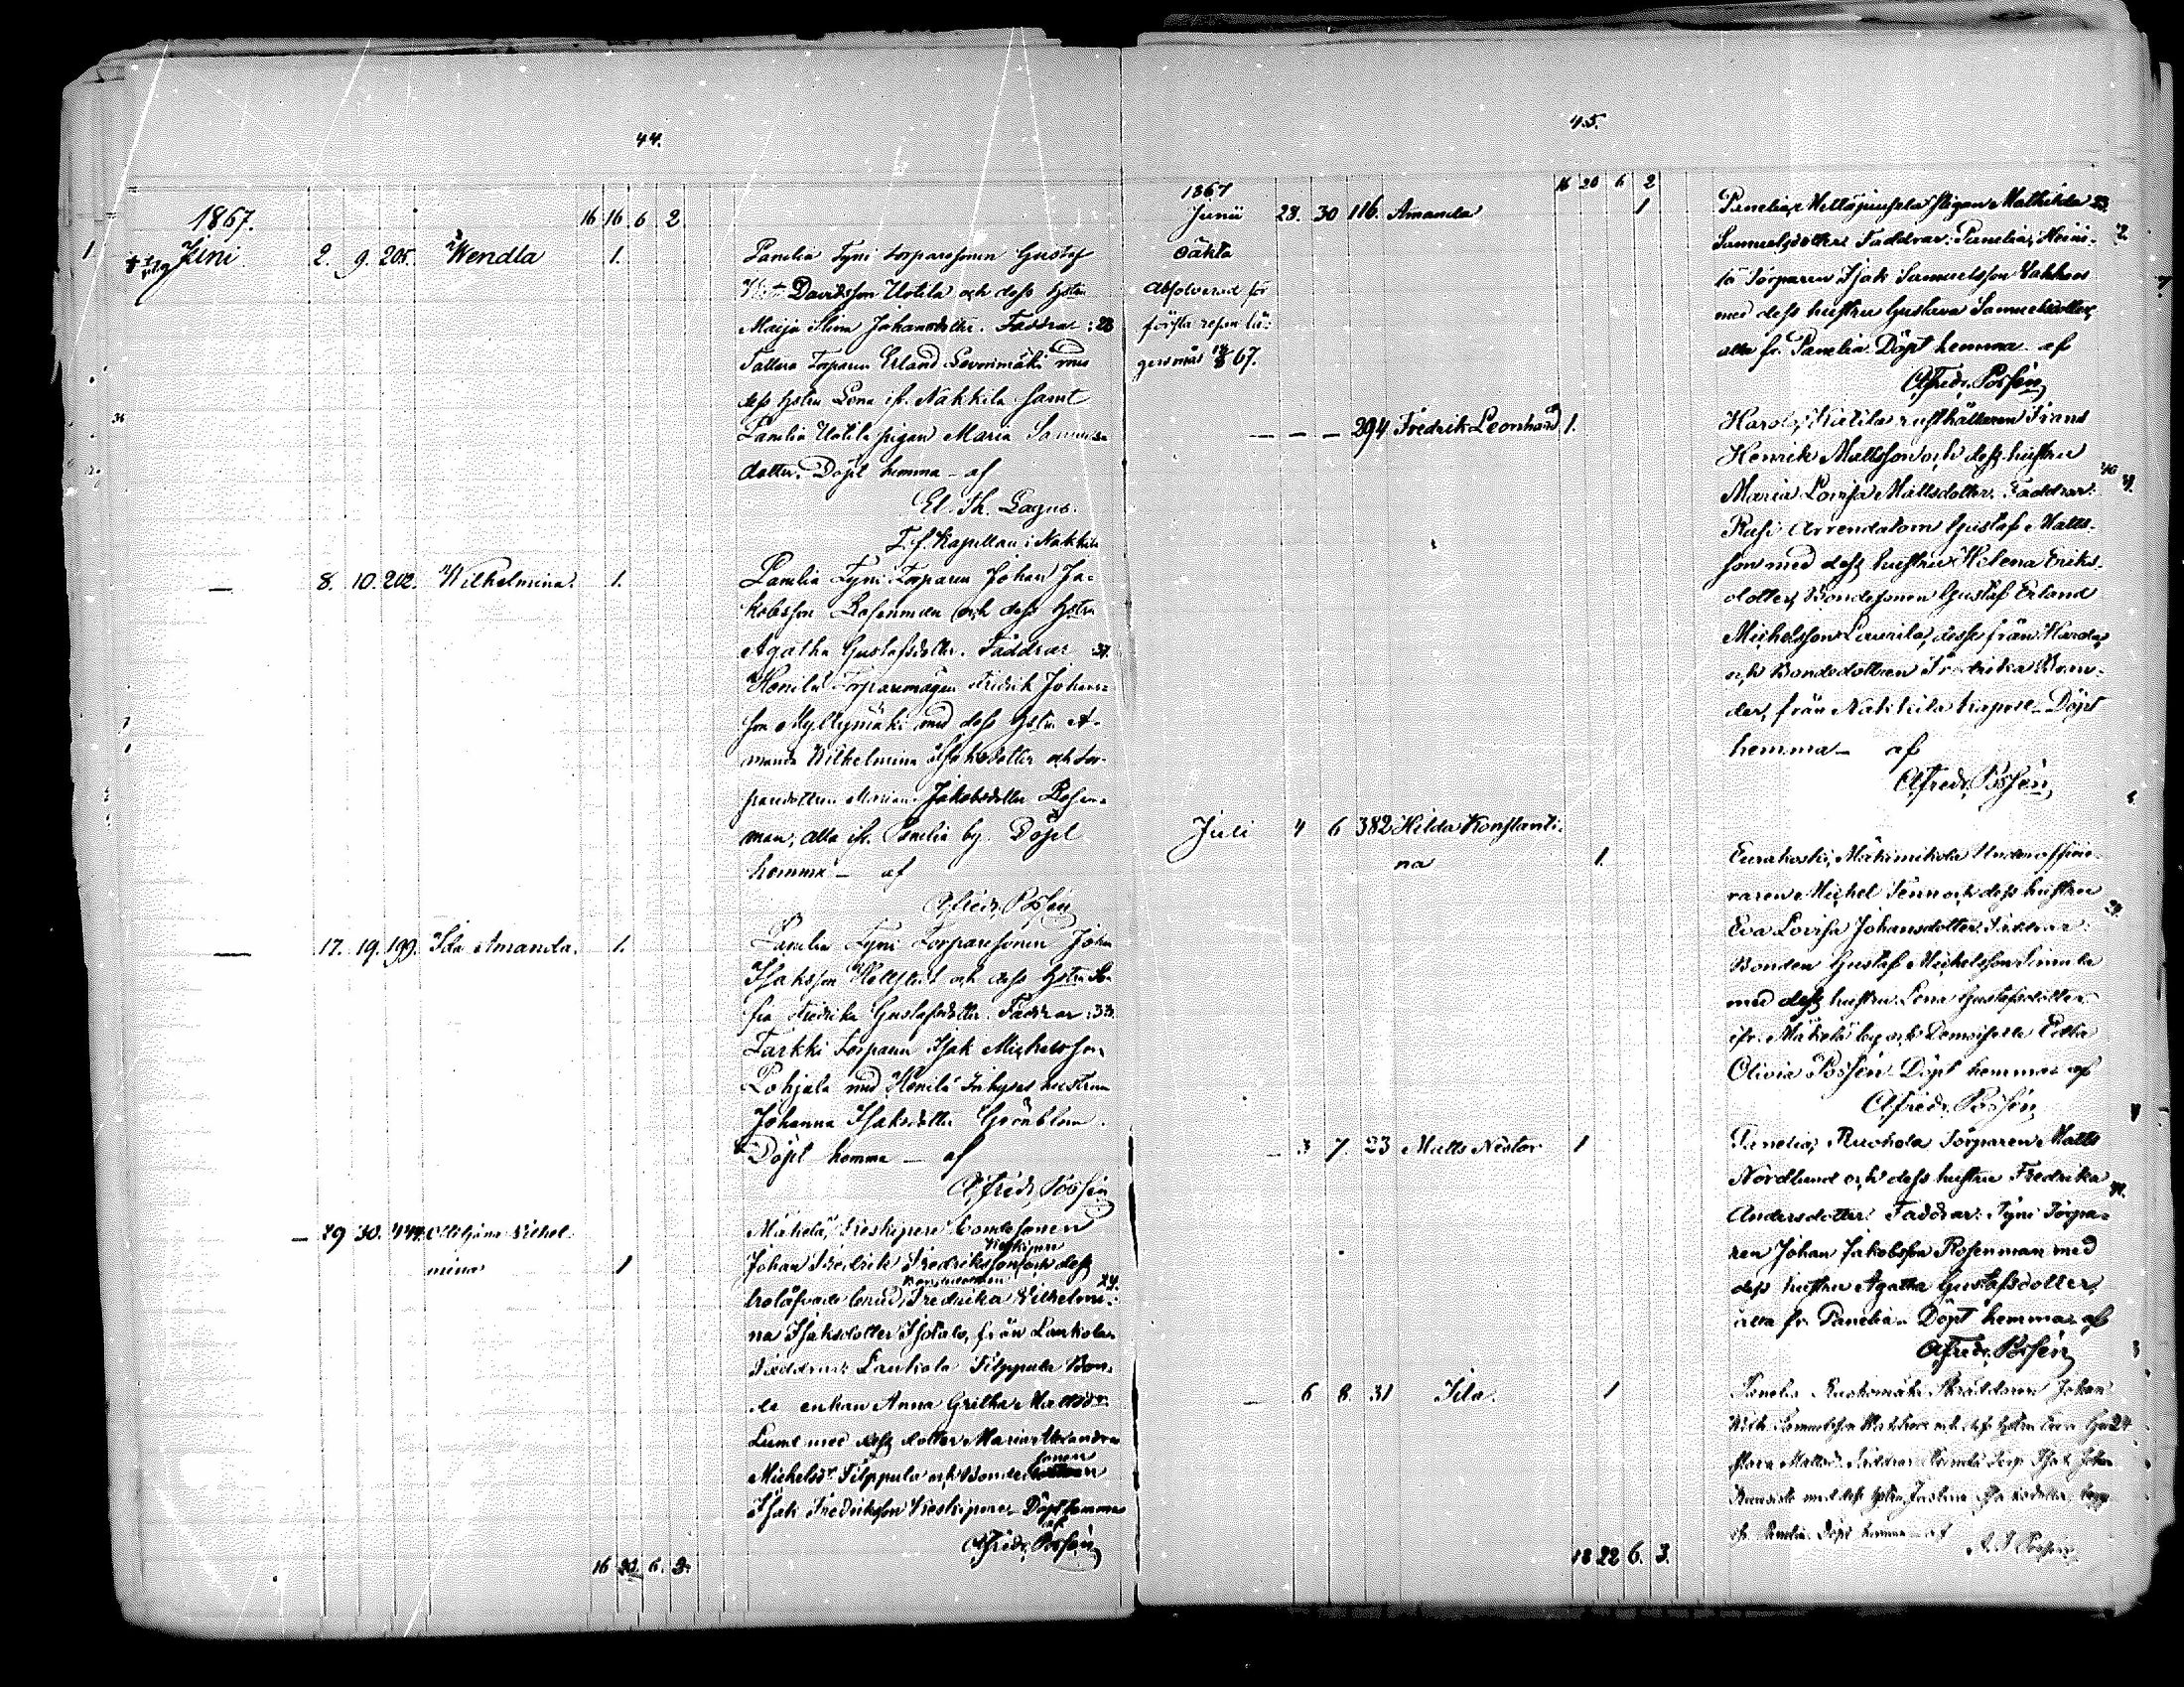 44.
1867.
16 16 6 2
Juni 2. 9. 205. Wendla 1.
Panelia Tyni torparesonen Gustaf
Davidsson Uotila och dess hstru
Maija Stina Johansdotter. Faddrar: 28
Torparen Erland Levonmäki med
dess hstru Lena ifr. Nakkila samt
Panelia Uotila pigan Maria
dotter. Döpt hemma – af
El. Th. Lagus.
T. f. Kapellan i Nakkila
— 8. 10. 202. Wilhelmina. 1.
Panelia Tyni Torparen Johan Ja-
kobsson Rosenman och dess hstru
Agatha Gustafsdotter. Faddrar 37.
Honila Torparemågen Fredrik Johans-
son Myllymäki med dess hstru A-
manda Wilhelmina och tor-
paredottren Maria Jakobsdotter Rosen-
man, alla ifr. Panelia by. Döpt
hemma – af
Alfredr. Possén
— 17. 19. 199. Ida Amanda. 1.
Panelia Tyni Torparesonen Johan
Isaksson och dess hstru So-
fia Fredrika Gustafsdotter. Faddrar: 33.
Turkki Torparen Isak Michelsson
Pohjala med Honila Inhyses hustrun
Johanna Isaksdotter Grönblom.
Döpt hemma – af
Alfredr. Possén
— 29 30. Vilhel-
mina 1
Mäkelä, Kieskipere bondesonen
Johan Fredrik Fredriksson Kieskipere och dess
trolofvade brud, Bondedottren Fredrika Vilhelmi- 24.
na Isaksdotter från Lankola.
Faddrar: Lankola Filppula Bon-
de enkan Anna Gretha Mattsdr.
med dess dotter Maria Alexandra
Michelsdr. Filppula och Bondesonen
Isak Fredriksson Kieskipere. Döpt hemma
af
Alfredr. Possén
16 20. 6. 2.
45.
16 20 6 2
1867
Junii 28. 30 116. Amanda 1
oäkta
Absolverad för
första resan lä-
gersmål 67.
Panelia, pigan Mathilda 23.
Samuelsdotter. Faddrar: Panelia, Heini-
lä Torparen Isak Samuelsson
med dess hustru Gustava Samuelsdotter,
alla fr. Panelia. Döpt hemma af
Alfredr. Possén
— — — 294 Fredrik Leonhard 1.
Harola, rusthållaren Frans
Henrik Mattsson och dess hustru
Maria Lovisa Mattsdotter. Faddrar: 40
Arrendatorn Gustaf Matts-
son med dess hustru Helena Eriks-
dotter, Bondesonen Gustaf Erland
Michelsson Laurila, desse från Harola,
och Bondedottren Fredrika
från Nakkila kapell. Döpt
hemma – af
Alfredr. Possén
Juli 4 6 382 Hilda Konstanti-
na 1.
Eurakoski, Underoffice-
raren Michel Tenn och dess hustru
Eva Lovisa Johansdotter. Faddrar: 29.
Bonden Gustaf Michelsson Simula
med dess hustru Lena Gustafsdotter
ifr. Mäkelä by och Demoiselle Edla
Olivia Possén. Döpt hemma af
Alfredr. Possén
— 3 7. 23 Matts Nestor 1
Panelia, Ruohola Torparen Matts
Nordlund och dess hustru Fredrika
Andersdotter. Faddrar: Tyni Torpa-
ren Johan Jakobsson Rosenman med
dess hustru Agatha Gustafsdotter,
alla fr. Panelia. Döpt hemma af
Alfredr. Possén
— 6 8. 31 Ida. 1
Panelia Skräddaren Johan
Wilh. Samuelsson och dess hstru Eva Gu- 24
stava Mattsd. Faddrar Torp. Isak Johan
med dess hstru
ifr. Panelia. Döpt hemma – af A. F. Possén
18 22 6. 3.